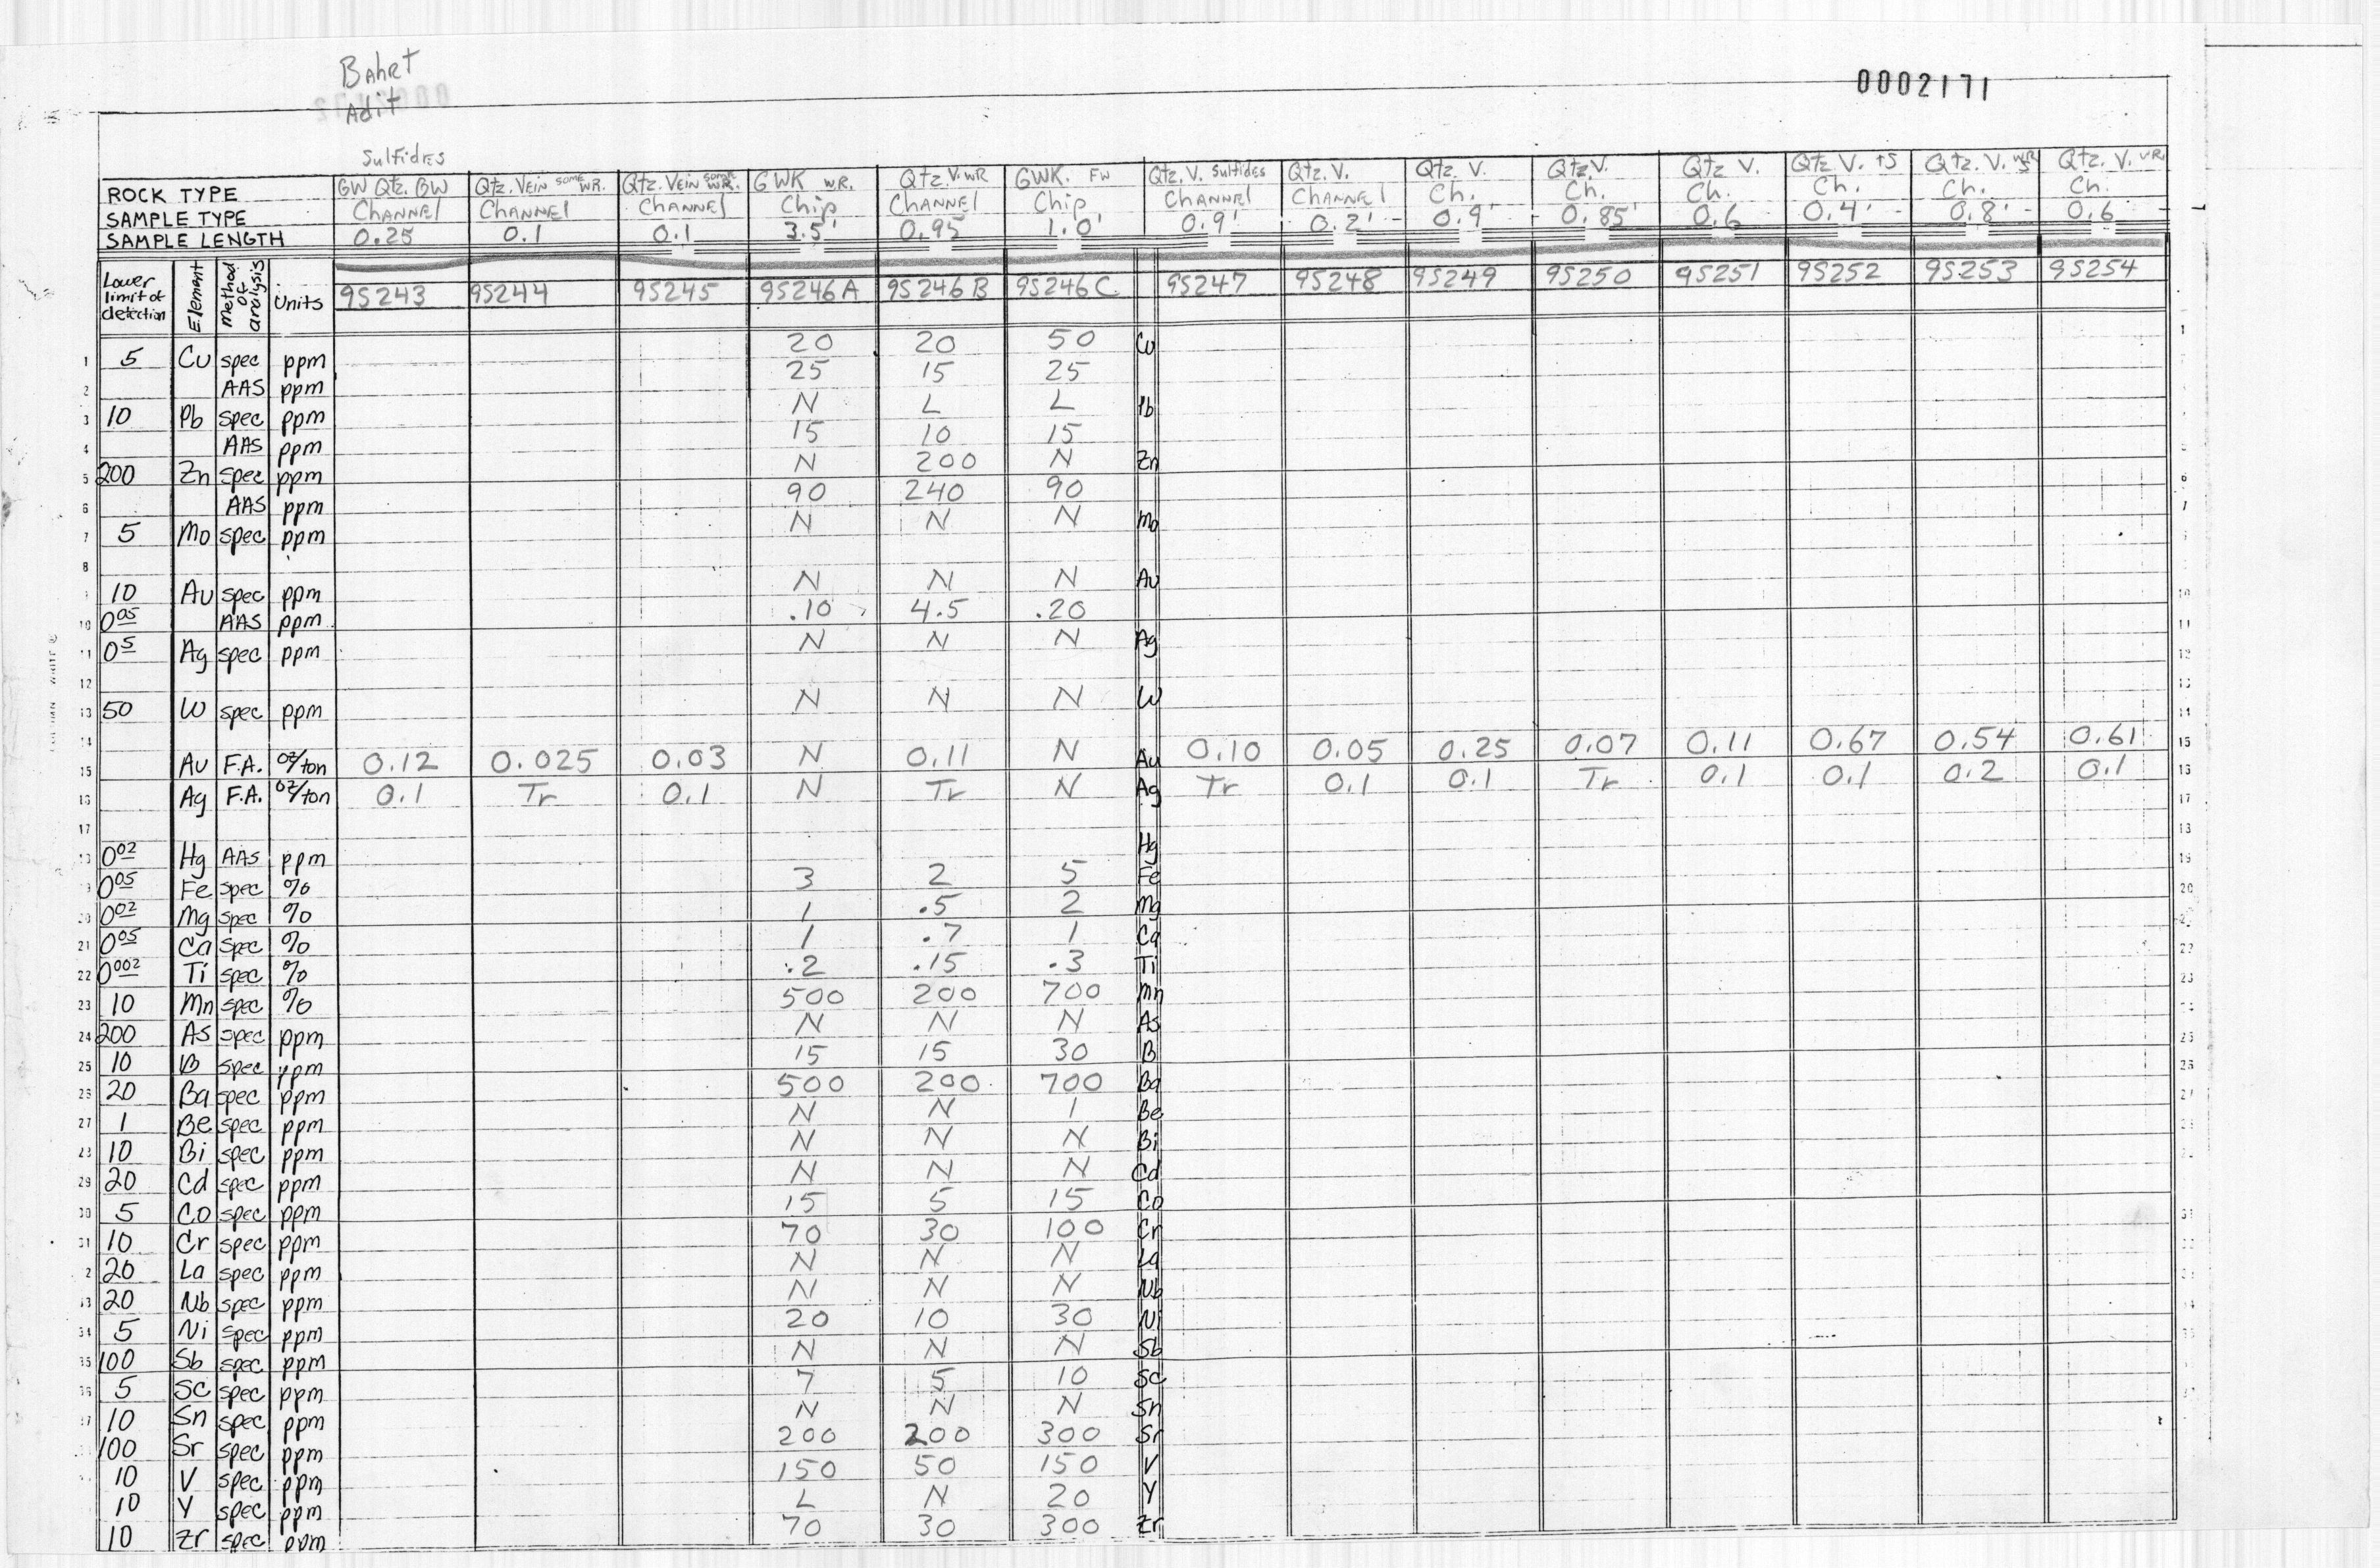 Bahrt
Adit
0002171
Sulfides
ROCK TYPE GW Qtz. BW Qtz. Vein some WR. Qtz. Vein some WR. GWK WR. Qtz V. WR GWK. FW Qtz. V. Sulfides Qtz. V. Qtz. V. Qtz V. Qtz V. Qtz V. +S Qtz. V. WR S Qtz. V. WR
SAMPLE TYPE Channel Channel Channel Chip Channel Chip Channel Channel Ch. Ch. Ch. Ch. Ch. Ch.
SAMPLE LENGTH 0.25 0.1 0.1 3.5' 0.95 1.0' 0.9' 0.2' 0.9' 0.85' 0.6 0.4' 0.8' 0.6
Lower limit of detection Element Method of analysis Units 9S243 9S244 9S245 9S246A 9S246B 9S246C 9S247 9S248 9S249 9S250 9S251 9S252 9S253 9S254
1 5 Cu spec ppm 20 20 50 Cu
2 AAS ppm 25 15 25
3 10 Pb spec ppm N L L Pb
4 AAS ppm 15 10 15
5 200 Zn spec ppm N 200 N Zn
6 AAS ppm 90 240 90
7 5 Mo spec ppm N N N Mo
8
9 10 Au spec ppm N N N Au
10 0.05 AAS ppm .10 4.5 .20
11 0.5 Ag spec ppm N N N Ag
12
13 50 W spec ppm N N N W
14
15 Au F.A. oz/ton 0.12 0.025 0.03 N 0.11 N Au 0.10 0.05 0.25 0.07 0.11 0.67 0.54 0.61
16 Ag F.A. oz/ton 0.1 Tr 0.1 N Tr N Ag Tr 0.1 0.1 Tr 0.1 0.1 0.2 0.1
17
18 0.02 Hg AAS ppm Hg
19 0.05 Fe spec % 3 2 5 Fe
20 0.02 Mg spec % 1 .5 2 Mg
21 0.05 Ca spec % 1 .7 1 Ca
22 0.002 Ti spec % .2 .15 .3 Ti
23 10 Mn spec % 500 200 700 Mn
24 200 As spec ppm N N N As
25 10 B spec ppm 15 15 30 B
26 20 Ba spec ppm 500 200 700 Ba
27 1 Be spec ppm N N 1 Be
28 10 Bi spec ppm N N N Bi
29 20 Cd spec ppm N N N Cd
30 5 Co spec ppm 15 5 15 Co
31 10 Cr spec ppm 70 30 100 Cr
2 20 La spec ppm N N N La
33 20 Nb spec ppm N N N Nb
34 5 Ni spec ppm 20 10 30 Ni
35 100 Sb spec ppm N N N Sb
36 5 Sc spec ppm 7 5 10 Sc
37 10 Sn spec ppm N N N Sn
100 Sr spec ppm 200 200 300 Sr
10 V spec ppm 150 50 150 V
10 Y spec ppm L N 20 Y
10 Zr spec ppm 70 30 300 Zr